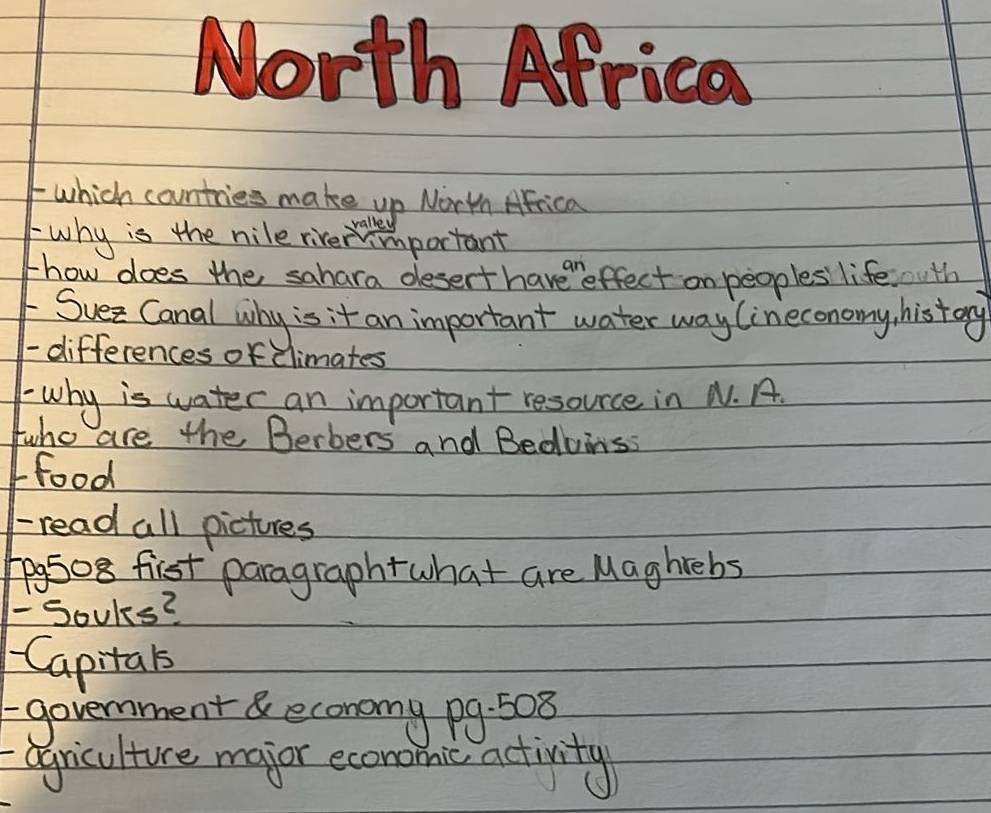 North Africa
- which countries make up North Africa
- why is the nile river valley important
- how does the sahara desert have an effect on peoples life.
- Suez Canal why is it an important water way (in economy, history)
- differences of climates
- why is water an important resource in N.A.
- who are the Berbers and Beduins
- food
- read all pictures
- pg508 first paragraph + what are Maghrebs
- Souks?
- Capitals
- government & economy pg.508
- agriculture major economic activity
-